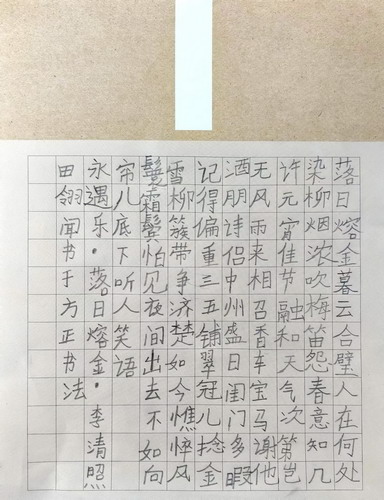 落日熔金暮云合璧人在何处
染柳烟浓吹梅笛怨春意知几
许元宵佳节融和天气次第岂
无风雨来相召香车宝马谢他
酒朋诗侣中州盛日闺门多暇
记得偏重三五铺翠冠儿捻金
雪柳簇带争济楚如今憔悴风
鬟霜鬓怕见夜间出去不如向
帘儿底下听人笑语
永遇乐·落日熔金·李清照
田翎闻书于方正书法